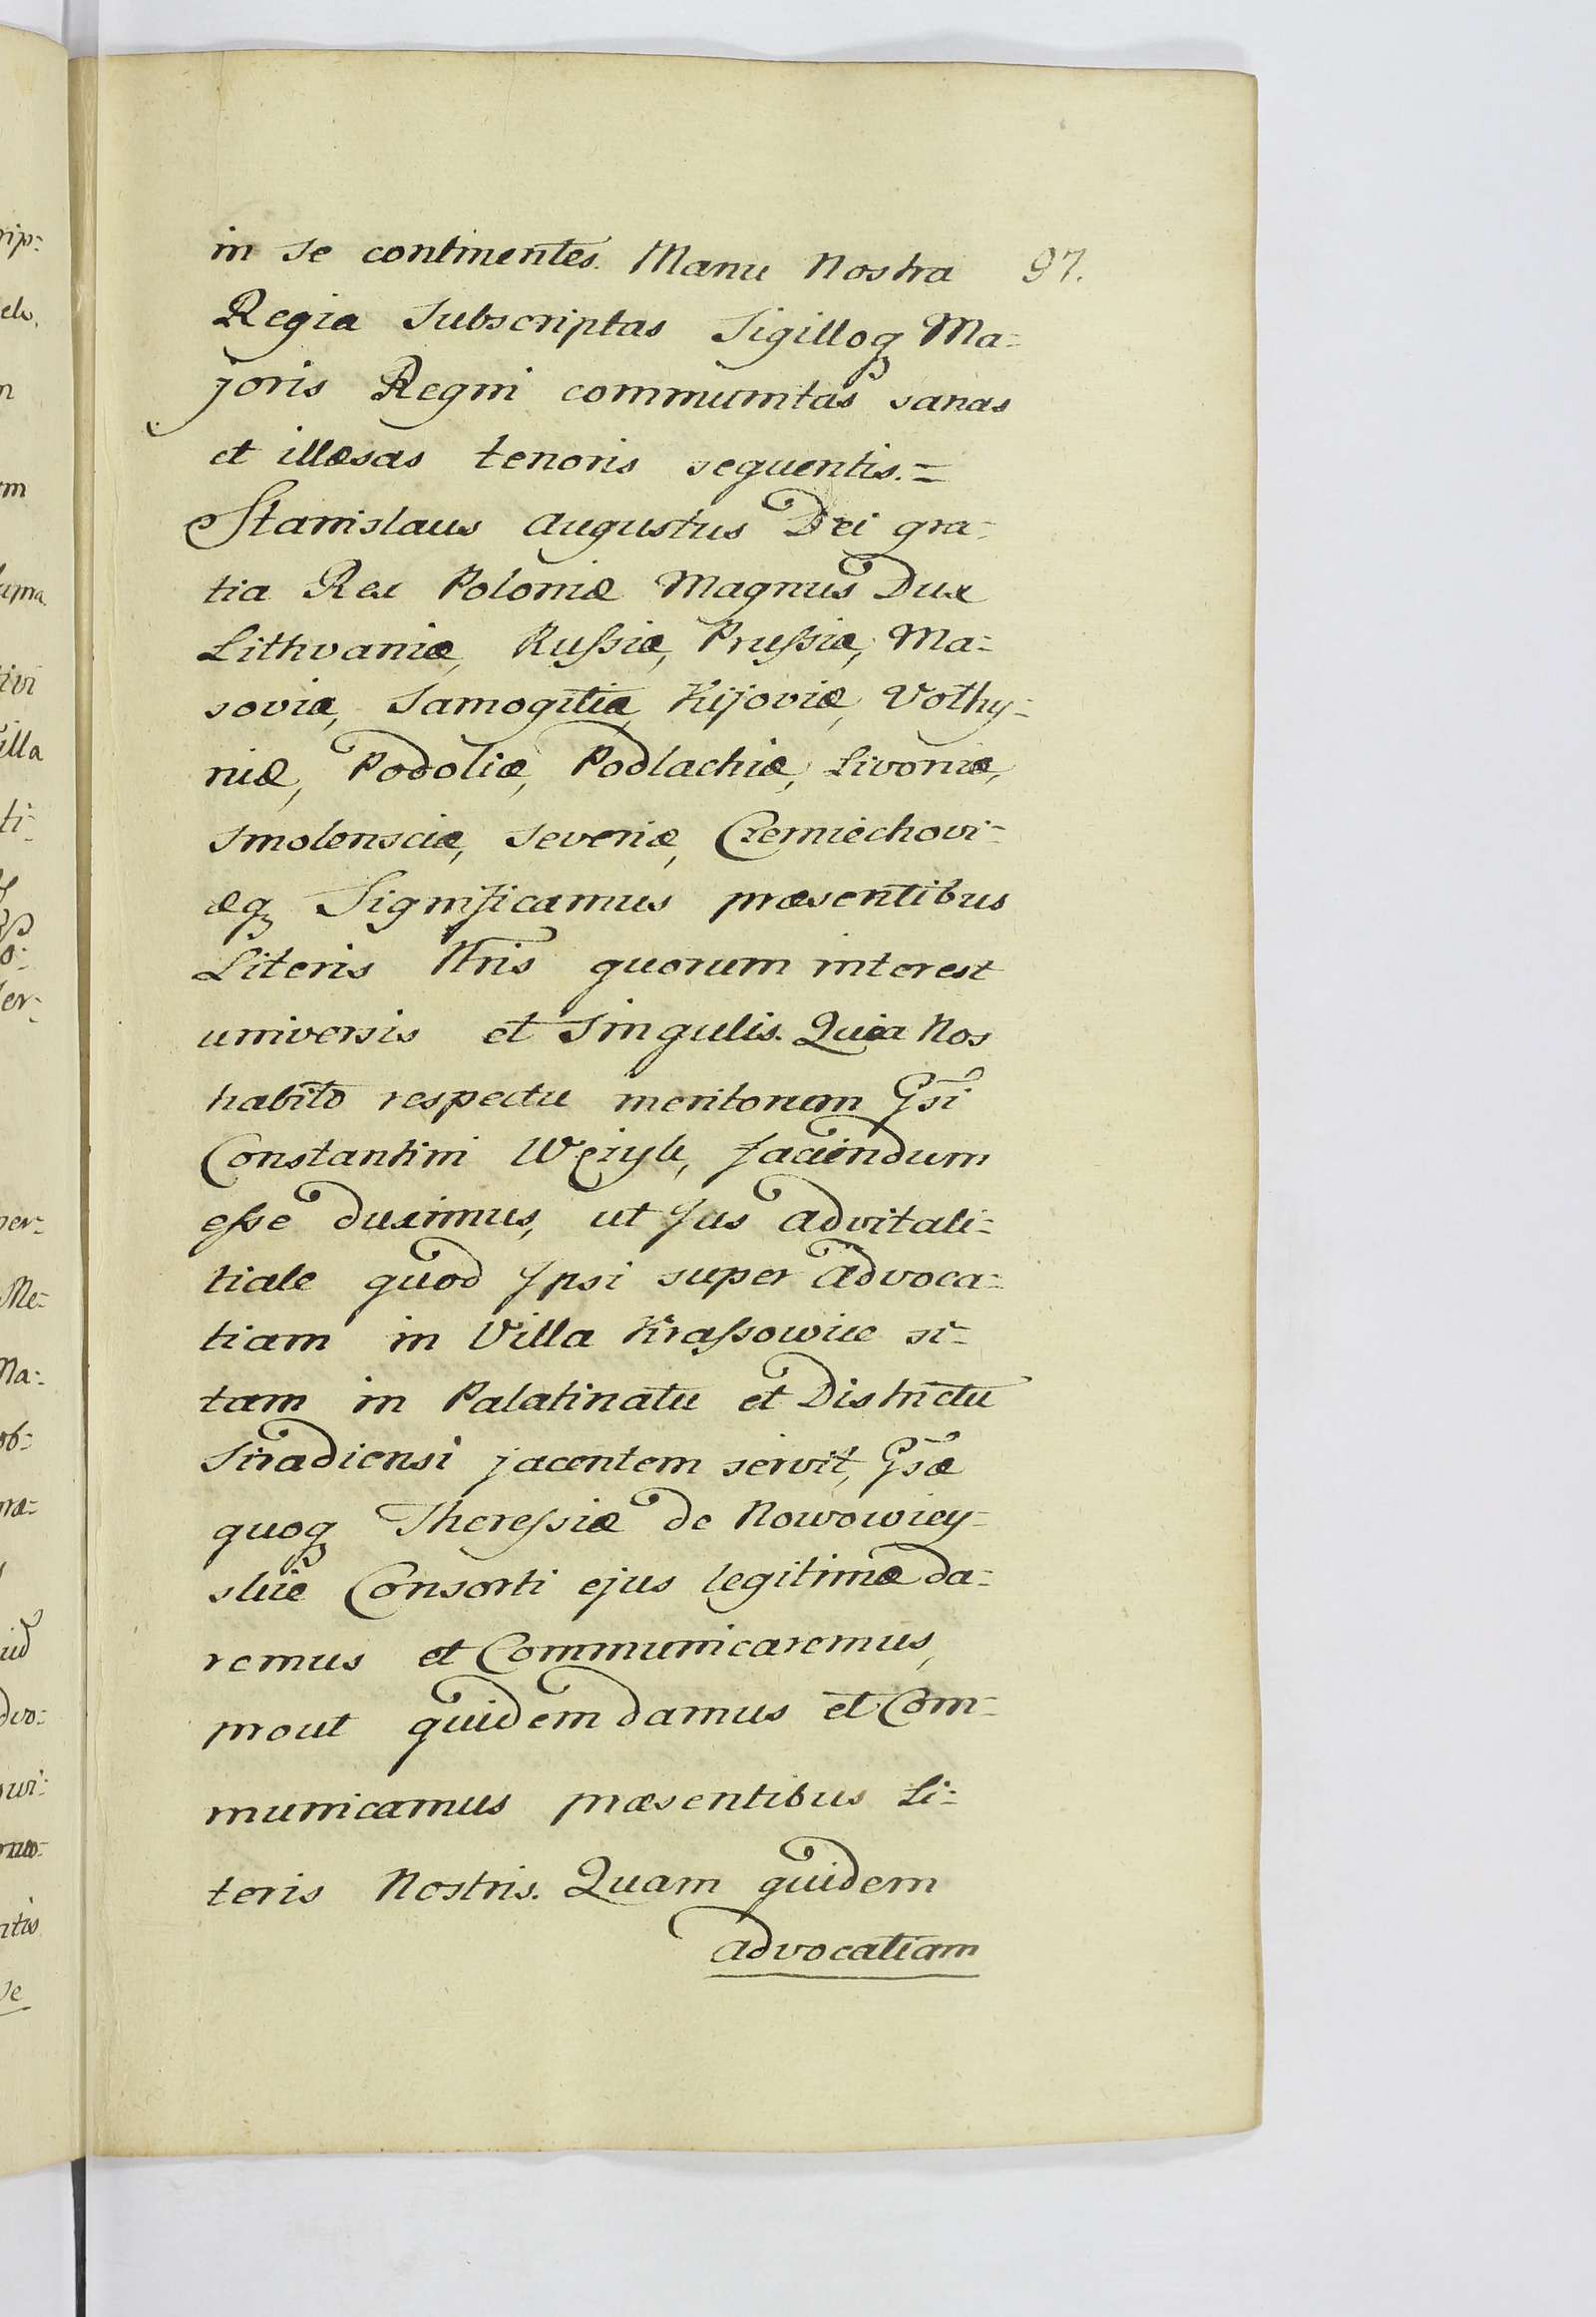 in se continentes. Manu Nostra 97.
Regia Subscriptas Sigilloq Ma=
joris Regni communitas sanas
et illæsas tenoris sequentis.=
Stanislaus Augustus Dei gra=
tia Rex Poloniæ Magnus Dux
Lithvaniæ, Rußiæ, Prußiæ, Ma=
soviæ, Samogitiæ, Kijoviæ, Volhy=
niæ, Podoliæ, Podlachiæ, Livoniæ,
Smolensciæ, Severiæ, Czerniechovi=
æq Significamus præsentibus
Literis Nris quorum interest
universis et Singulis. Quia Nos
habito respectu meritorum Gsi
Constantini faciendum
eße duximus, ut Jus advitali=
tiale quod Ipsi super Advoca=
tiam in Villa Kraßowice si=
tam in Palatinatu et Districtu
Siradiensi jacentem servit, Gsæ
quoq Thereßiæ de Nowowiey=
skie Consorti ejus legitimæ da=
remus et Communicaremus,
prout quidem damus et Com=
municamus præsentibus Li=
teris Nostris. Quam quidem
advocatiam